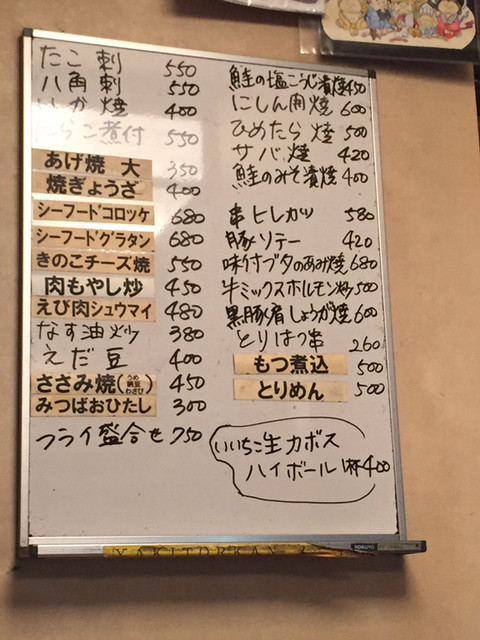 たこ刺 550
八角刺 550
いか焼 400
たらこ煮付 550
あげ焼 大 350
焼ぎょうざ 400
シーフードコロッケ 680
シーフードグラタン 680
きのこチーズ焼 550
肉もやし炒 450
えび肉シュウマイ 480
なす油炒 380
えだ豆 400
ささみ焼(うめ 納豆 わさび) 450
みつばおひたし 300
フライ盛合せ 750
鮭の塩こうじ漬焼 450
にしん開焼 600
ひめたら焼 500
サバ焼 420
鮭のみそ漬焼 400
串ヒレカツ 580
豚ソテー 420
味付ブタのあみ焼 680
牛ミックスホルモン炒 500
黒豚肩しょうが焼 600
とりはつ串 260
もつ煮込 500
とりめん 500
いいちこ生カボス
ハイボール 1杯400
YAKITORKAN
KOKUYO